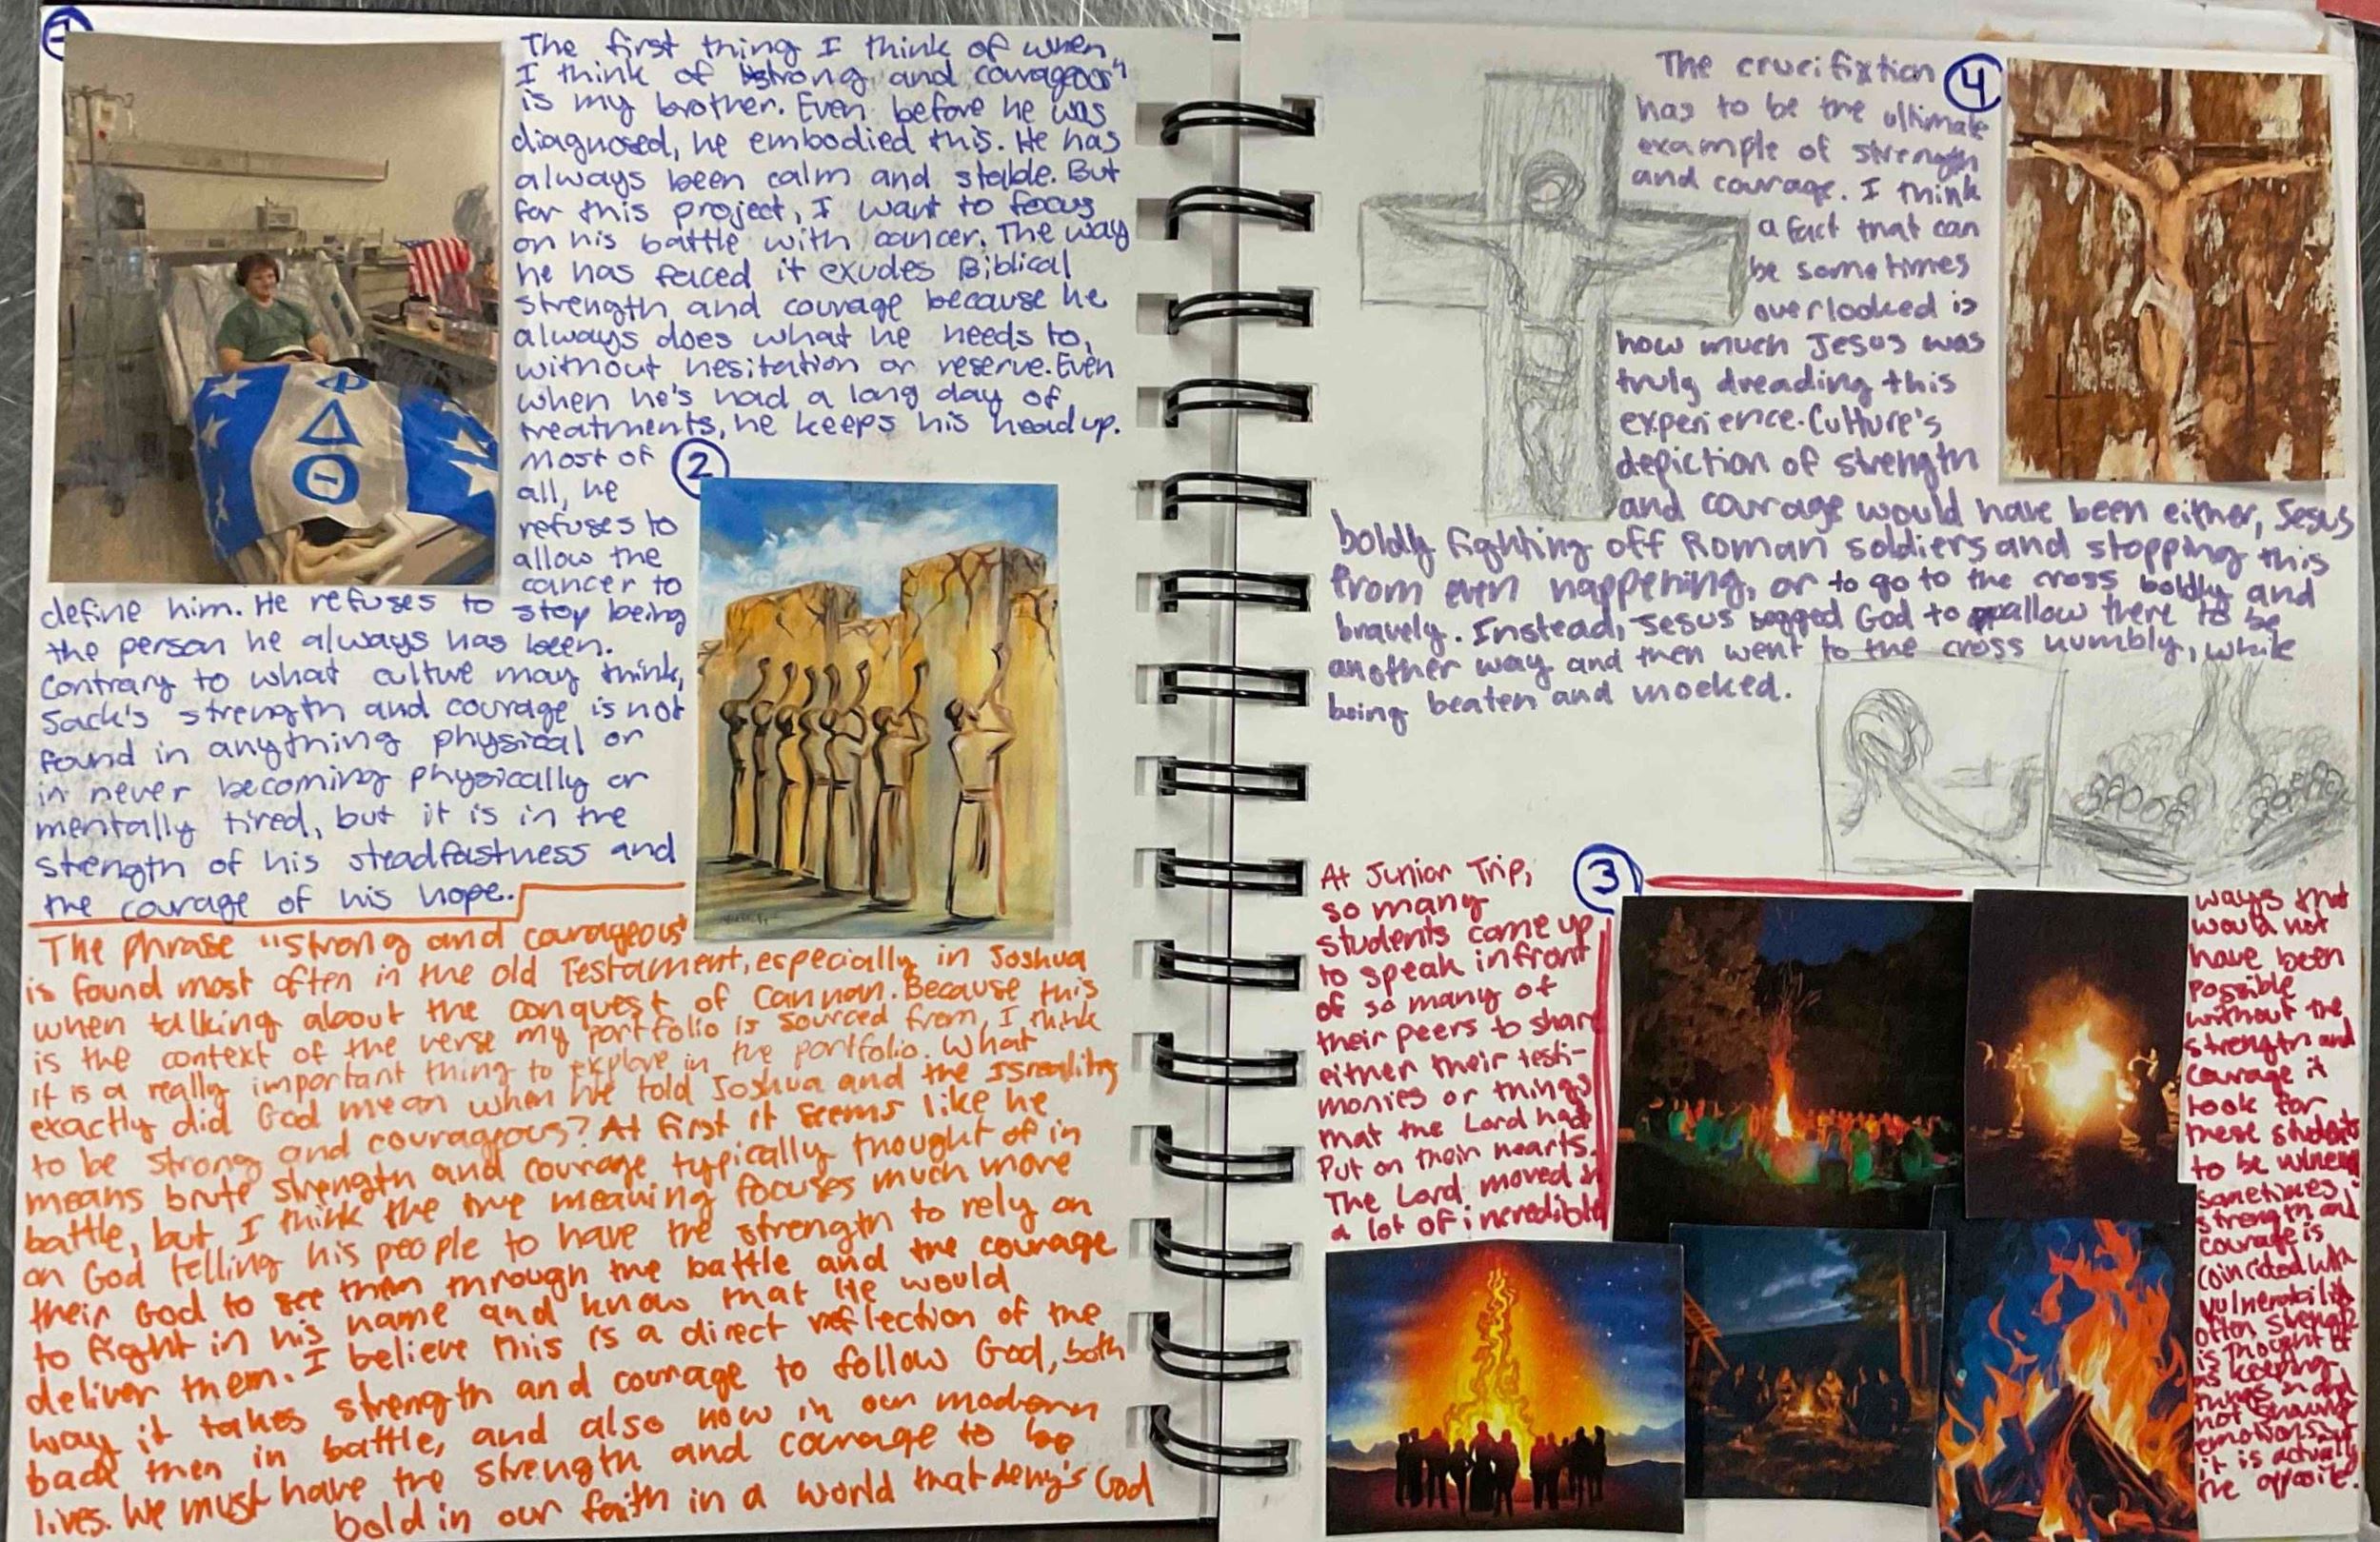 1
The first thing I think of when
I think of "strong and courageous"
is my brother. Even before he was
diagnosed, he embodied this. He has
always been calm and stable. But
for this project, I want to focus
on his battle with cancer. The way
he has faced it exudes Biblical
strength and courage because he
always does what he needs to,
without hesitation or reserve. Even
when he's had a long day of
treatments, he keeps his head up.
Most of
all, he
refuses to
allow the
cancer to
define him. He refuses to stop being
the person he always has been.
Contrary to what culture may think,
Jack's strength and courage is not
found in anything physical or
in never becoming physically or
mentally tired, but it is in the
strength of his steadfastness and
the courage of his hope.
Φ
Δ
Θ
2
The phrase "strong and courageous"
is found most often in the Old Testament, especially in Joshua
when talking about the conquest of Cannan. Because this
is the context of the verse my portfolio is sourced from, I think
it is a really important thing to explore in the portfolio. What
exactly did God mean when he told Joshua and the Isrealites
to be strong and courageous? At first it seems like he
means brute strength and courage typically thought of in
battle, but I think the true meaning focuses much more
on God telling his people to have the strength to rely on
their God to see them through the battle and the courage
to fight in his name and know that He would
deliver them. I believe this is a direct reflection of the
way it takes strength and courage to follow God, both
back then in battle, and also now in our modern
lives. We must have the strength and courage to be
bold in our faith in a world that deny's God
4
The crucifixtion
has to be the ultimate
example of strength
and courage. I think
a fact that can
be sometimes
overlooked is
how much Jesus was
truly dreading this
experience. Culture's
depiction of strength
and courage would have been either, Jesus
boldly fighting off Roman soldiers and stopping this
from even happening, or to go to the cross boldly and
bravely. Instead, Jesus begged God to allow there to be
another way and then went to the cross humbly, while
being beaten and mocked.
3
At Junior Trip,
so many
students come up
to speak infront
of so many of
their peers to share
either their testi-
monies or things
that the Lord had
put on their hearts.
The Lord moved in
a lot of incredible
ways that
would not
have been
possible
without the
strength and
courage it
took for
these students
to be
sometimes
strength and
courage is
coincided with
vulnerability
often strength
is thought of
as keeping
things in and
not showing
emotions, but
it is actually
the opposite.